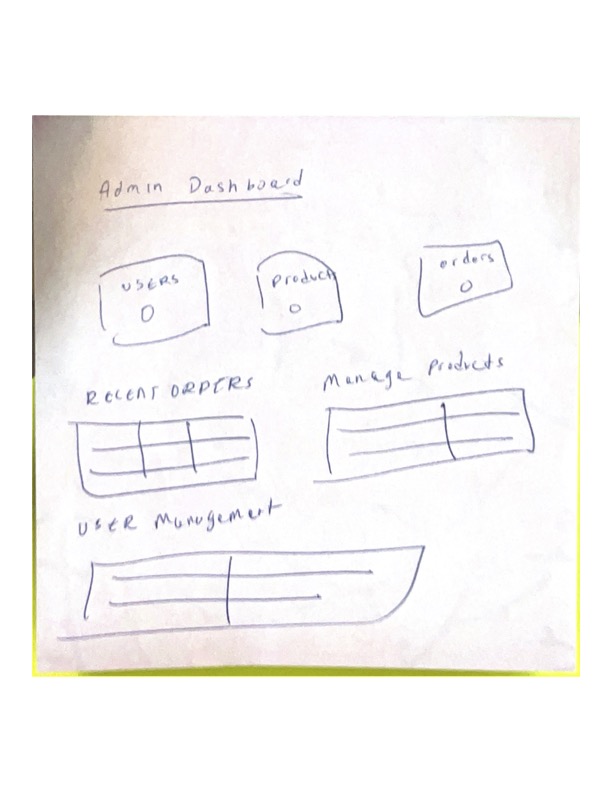 Admin Dashboard
USERS
0
Product
0
orders
0
RECENT ORDERS
Manage Products
USER Management